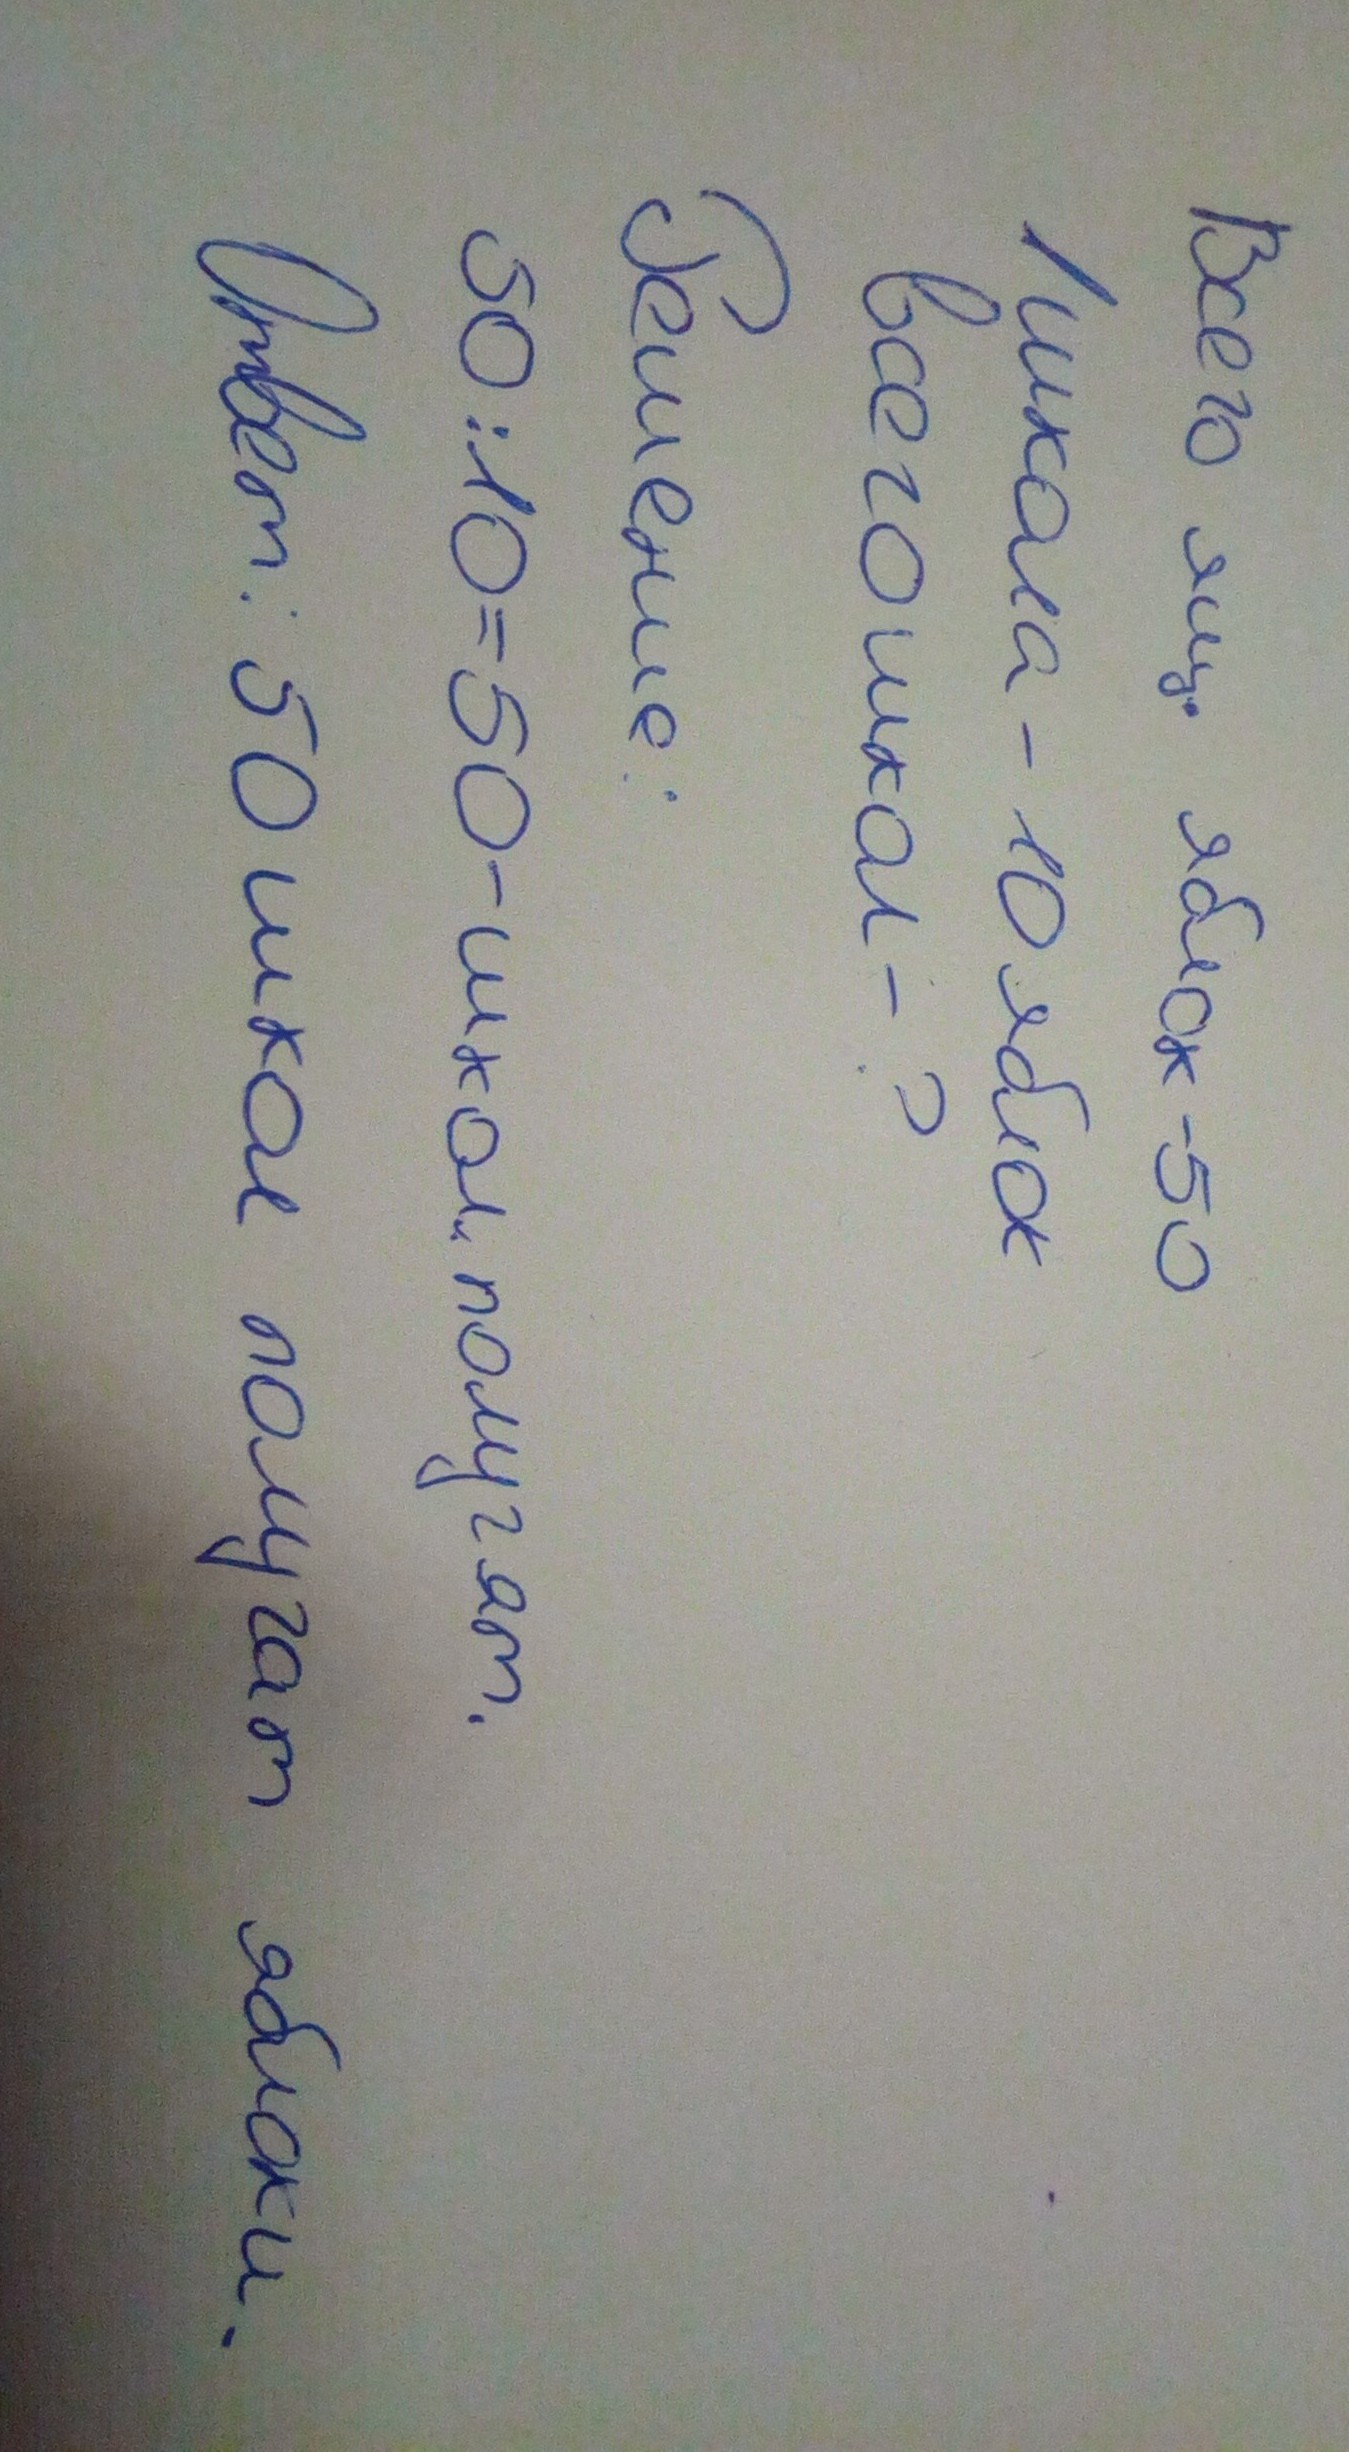 Всего ящ. яблок-50
1 школа - 10 яблок
всего школ - ?
Решение:
50:10=50-школ. получят.
Ответ: 50 школ получат яблоки.